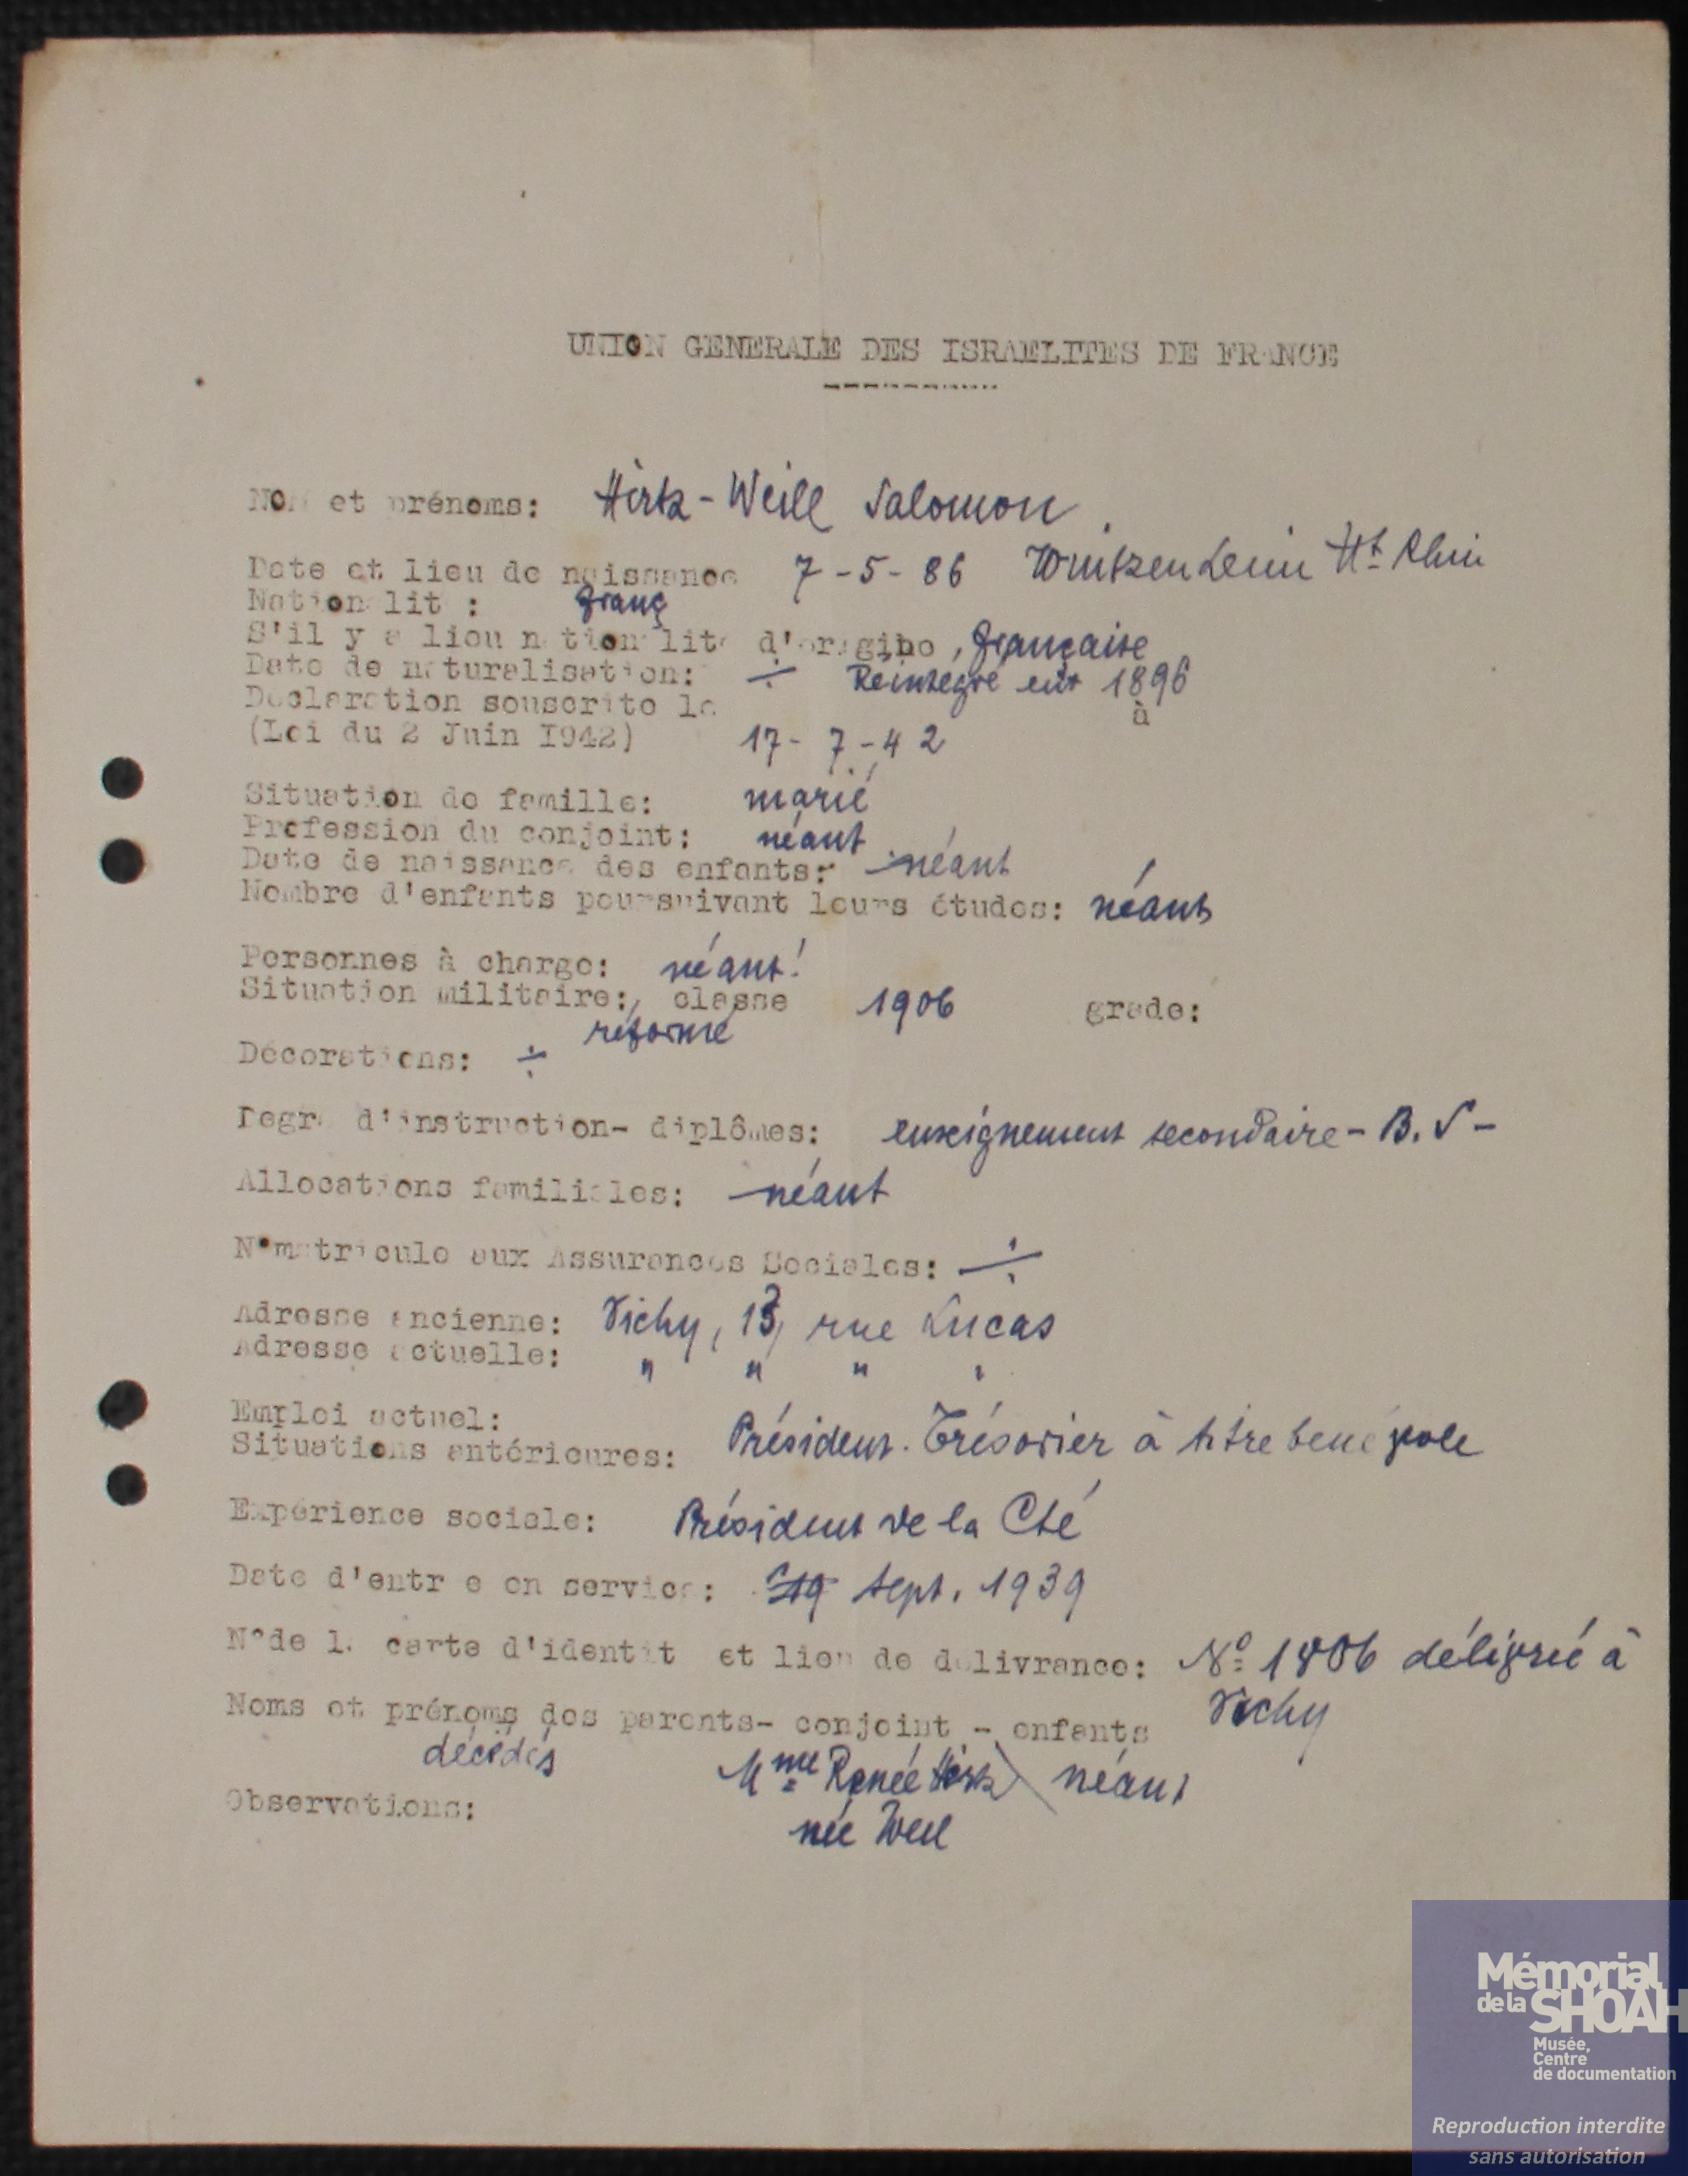 UNION GENERALE DES ISRAELITES DE FRANCE
Nom et prénoms: Hirtz-Weill Salomon
Date et lieu de naissance 7-5-86 Wintzenheim Ht Rhin
Nationalité: franç
S'il y a lieu nationalité d'origine, française
Date de naturalisation: ÷ Réintégré en 1896
Déclaration souscrite le à
(Loi du 2 Juin I942) 17-7-42
Situation de famille: marié
Profession du conjoint: néant
Date de naissance des enfants: néant
Nombre d'enfants poursuivant leurs études: néant
Personnes à charge: néant!
Situation militaire:, classe 1906 grade:
réformé
Décorations: ÷
Degré d'instruction- diplômes: enseignement secondaire - B.S-
Allocations familiales: néant
N°matricule aux Assurances Sociales: ÷
Adresse ancienne: Vichy, 13, rue Lucas
Adresse actuelle: " " " "
Emploi actuel:
Situations antérieures: Président-Trésorier à titre bénévole
Expérience sociale: Président de la Cté
Date d'entrée en service: sept. 1939
N°de la carte d'identité et lieu de délivrance: No 1806 délivrée à
Vichy
Noms et prénoms des parents- conjoint - enfants
décédés Mme Renée Hirtz néant
née Weil
Observations:
Mémorial
de la SHOAH
Musée,
Centre
de documentation
Reproduction interdite
sans autorisation